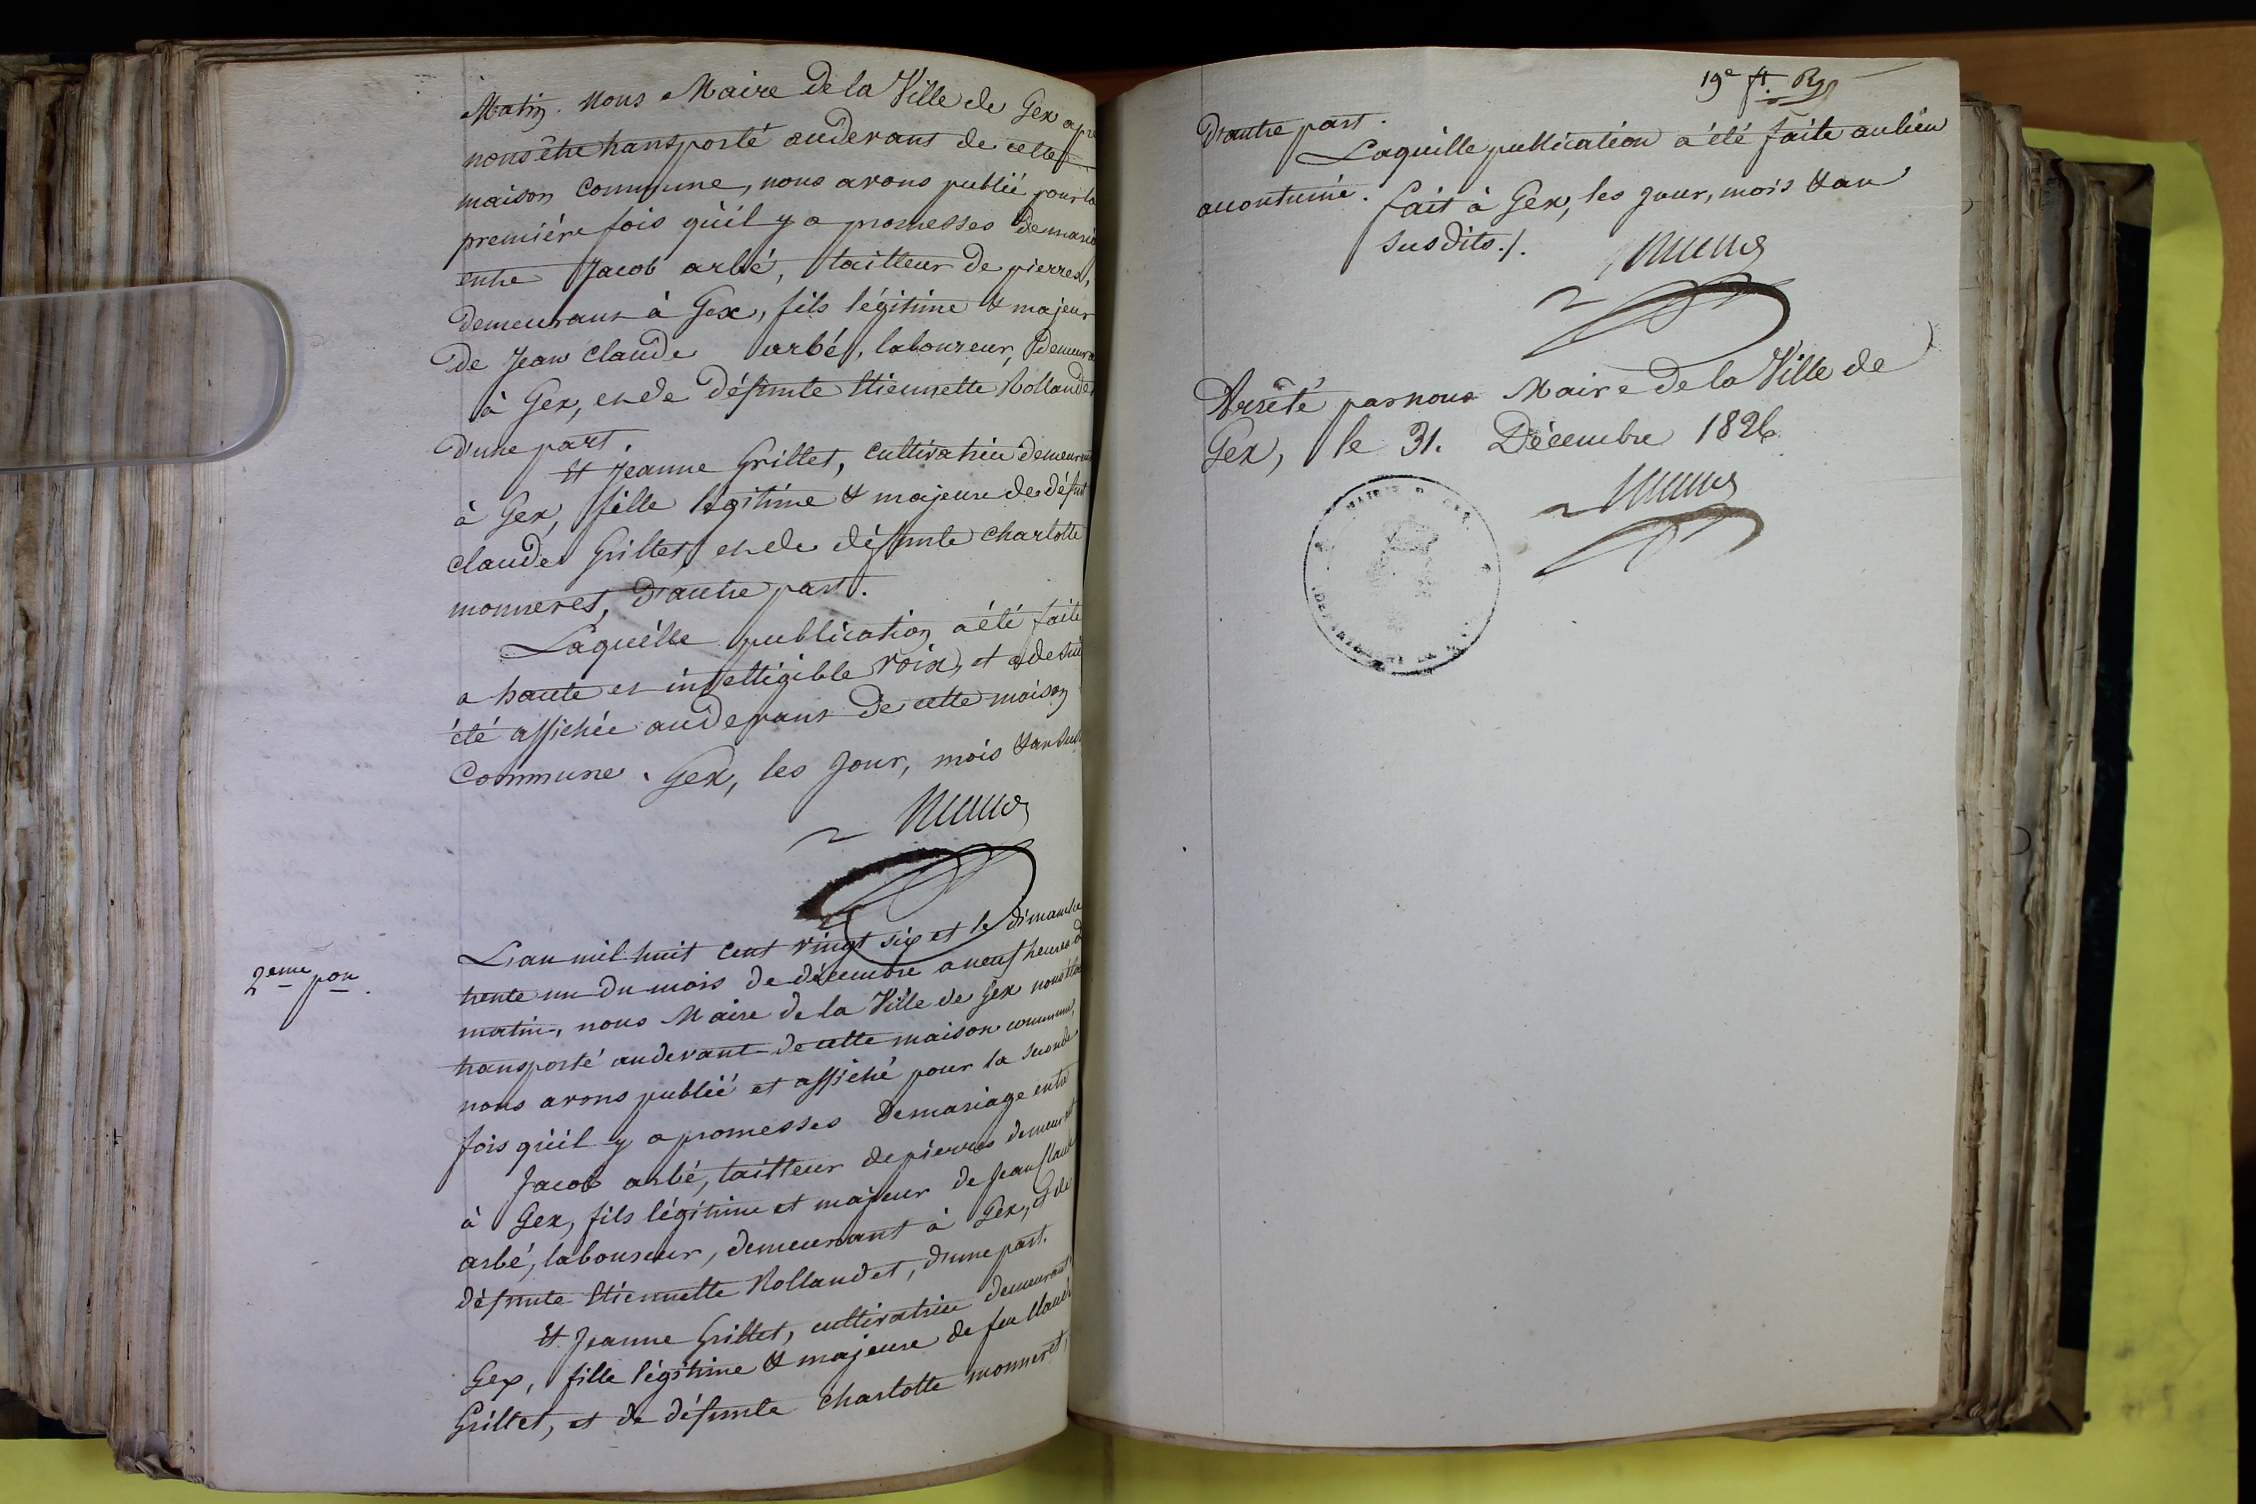 Matin. Nous Maire de la Ville de Gex apre
nous être transporté audevant de cette
maison Commune, nous avons publié pour la
première fois qu'il y a promesses de maria
entre Jacob arbé, tailleur de pierres,
demeurant à Gex, fils légitime & majeur
de Jean Claude arbé, laboureur, demeura
à Gex, et de défunte Etiennette Rollandet
d'une part.
Et Jeanne Grillet, Cultivatrice demeurant
à Gex, fille légitime & majeure de défunt
Claude Grillet, et de défunte Charlotte
monneret, d'autre part.
Laquelle publication a été faite
a haute et intelligible voix, et a de suite
été affichée audevant de cette maison
Commune. Gex, les jour, mois & an susd
2eme pon.
L'an mil huit cent vingt six et le dimanche
trente un du mois de décembre a neuf heures d
matin, nous Maire de la Ville de Gex nous étan
transporté audevant de cette maison commune,
nous avons publié et affiché pour la seconde
fois qu'il y a promesses de mariage entre
Jacob arbé, tailleur de pierres demeurant
à Gex, fils légitime et majeur de Jean Claude
arbé, laboureur, demeurant à Gex, et de
défunte Etiennette Rollandet, d'une part.
Et Jeanne Grillet, cultivatrice demeurant
Gex, fille légitime & majeure de feu Claude
Grillet, et de défunte Charlotte monneret,
19e ft. Rg
D'autre part.
Laquelle publication a été faite au lieu
accoutumé. fait à Gex, les jour, mois & an
susdits./.
Arrêté par nous Maire de la Ville de
Gex, le 31. Décembre 1826.